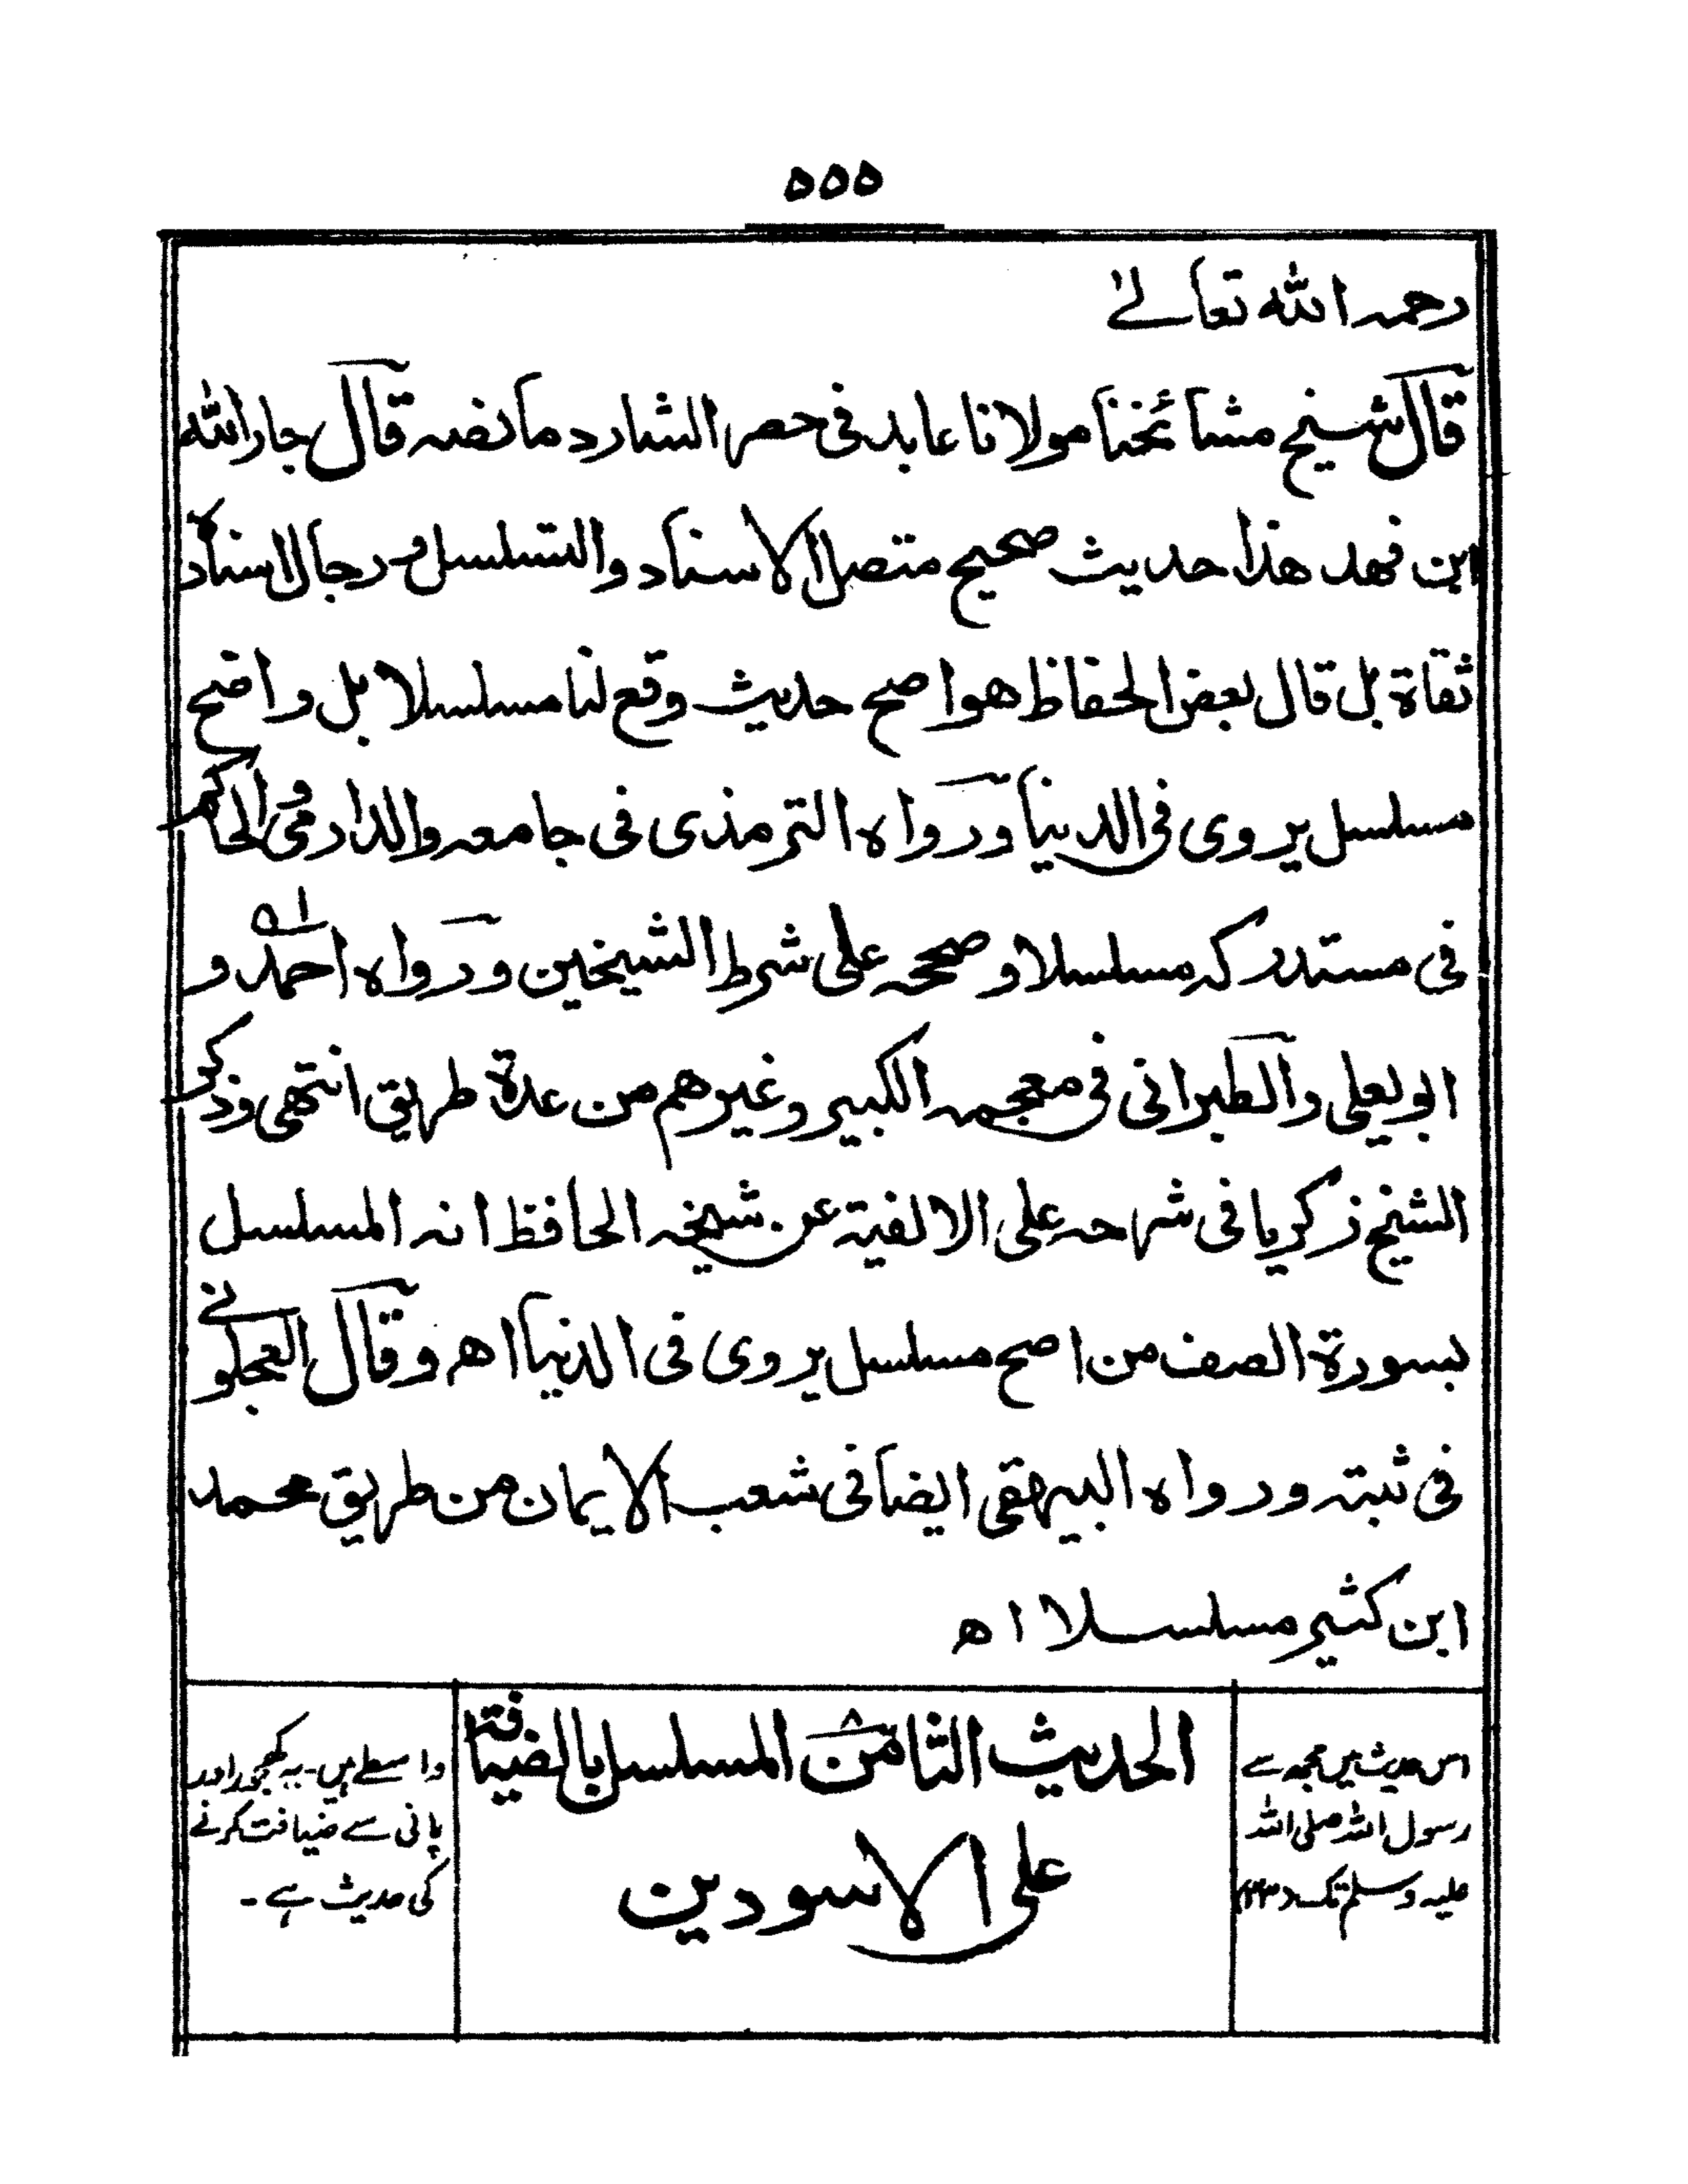 ۵۵۵
رحمہ اللہ تعالےٰ
قال شیخ مشائخنا مولانا عابد فی حصر الشارد ما نصہ قال جار اللہ
ابن فهد هذا حدیث صحیح متصل الاسناد والتسلسل ورجال اسنادہ
ثقاة بل قال بعض الحفاظ هو اصح حدیث وقع لنا مسلسلا بل واضح
مسلسل یروی فی الدنیا ورواه الترمذی فی جامعہ والدارمی والحاکم
فی مستدرکہ مسلسلا وصححہ علی شرط الشیخین ورواه احمد اه و
ابو یعلی والطبرانی فی معجمہ الکبیر وغیرهم من عدة طریق انتهی وذکر
الشیخ زکریا فی شرحہ علی الالفیة عن شیخہ الحافظ انہ المسلسل
بسورة الصف من اصح مسلسل یروی فی الدنیا اھ وقال العجلونے
فی ثبتہ ورواه البیهقی ایضا فی شعب الایمان من طریق محمد
ابن کثیر مسلسلا اھ
الحدیث الثامن ۸ المسلسل بالضیافة
علی الاسودین
اس حدیث میں مجھ سے
رسول اللہ صلی اللہ
علیہ وسلم تک (۲۳)
واسطے ہیں۔ یہ کھجور اور
پانی سے ضیافت کرنے
کی حدیث ہے۔